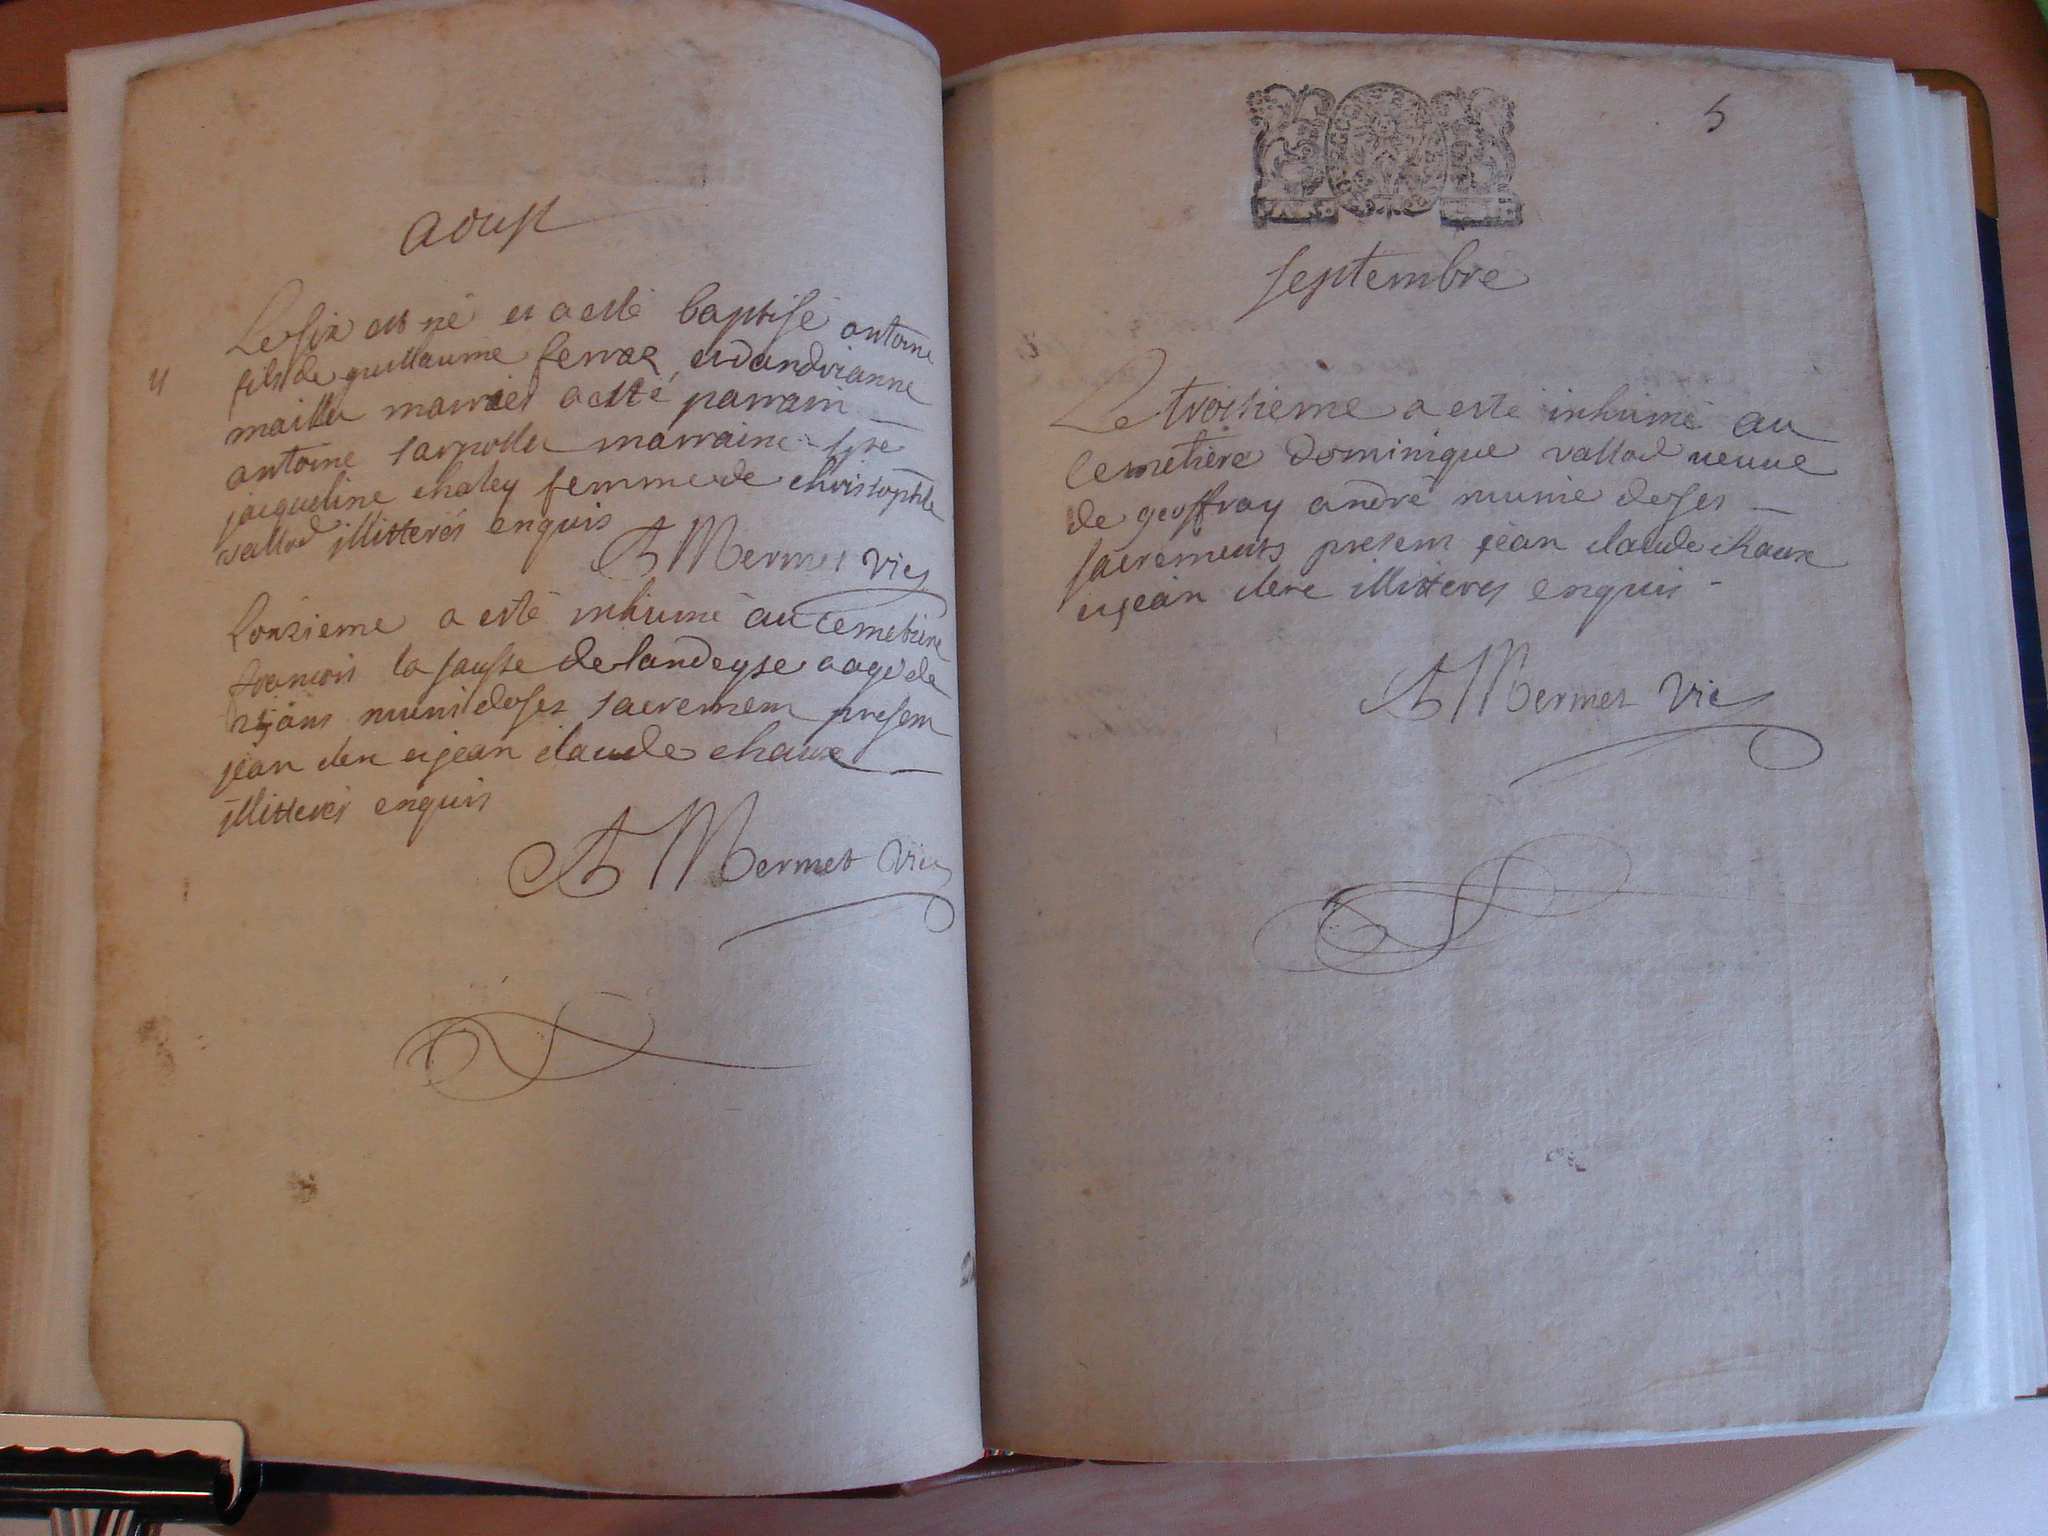 aoust
Le six est né et a esté baptisé antoine
fils de guillaume ferrar et dandrianne
mailler mariés a esté parrain
antoine marraine
jacqueline chaley femme de christophle
vallod illitterés enquis
A Mermet vic
Lonzieme a esté inhumé au cemetiere
francois la sausse de landeyse aagé de
ans muni de ses sacremens presens
jean clere et jean claude chaux
illitterés enquis
A Mermet vic
5
septembre
Le troisieme a esté inhumé au
cemetiere dominique vallod veuve
de geoffray andré munie de ses
sacrements presens jean claude chaux
et jean clere illitteres enquis
A Mermet vic